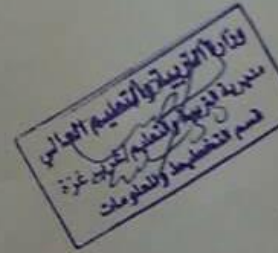 وزارة التربية والتعليم العالي
مديرية التربية والتعليم غزة
قسم التخطيط والمعلومات